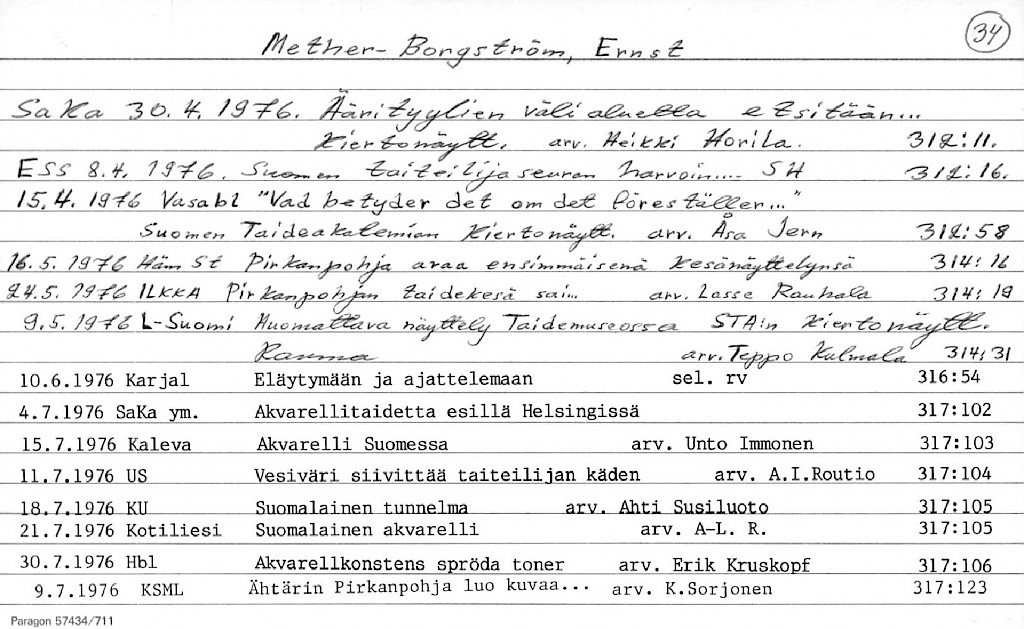 34
Mether-Borgström, Ernst
SaKa 30.4.1976. Äärityylien välialuetta etsitään...
Kiertonäytt. arv. Heikki Horila. 312:11.
ESS 8.4.1976. Suomen taiteilijaseuran harvoin.... SH 312:16.
15.4.1976 Vasabl "Vad betyder det om det föreställer..."
Suomen Taideakatemian Kiertonäytt. arv. Åsa Jern 312:58
16.5.1976 Häm St Pirkanpohja avaa ensimmäisenä kesänäyttelynsä 314:16
24.5.1976 ILKKA Pirkanpohjan taidekesä sai... arv. Lasse Rauhala 314:19
9.5.1976 L-Suomi Huomattava näyttely Taidemuseossa STA:n Kiertonäytt.
Rauma arv. Teppo Kulmala 314:31
10.6.1976 Karjal Eläytymään ja ajattelemaan sel. rv 316:54
4.7.1976 SaKa ym. Akvarellitaidetta esillä Helsingissä 317:102
15.7.1976 Kaleva Akvarelli Suomessa arv. Unto Immonen 317:103
11.7.1976 US Vesiväri siivittää taiteilijan käden arv. A.I.Routio 317:104
18.7.1976 KU Suomalainen tunnelma arv. Ahti Susiluoto 317:105
21.7.1976 Kotiliesi Suomalainen akvarelli arv. A-L. R. 317:105
30.7.1976 Hbl Akvarellkonstens spröda toner arv. Erik Kruskopf 317:106
9.7.1976 KSML Ähtärin Pirkanpohja luo kuvaa... arv. K.Sorjonen 317:123
Paragon 57434/711